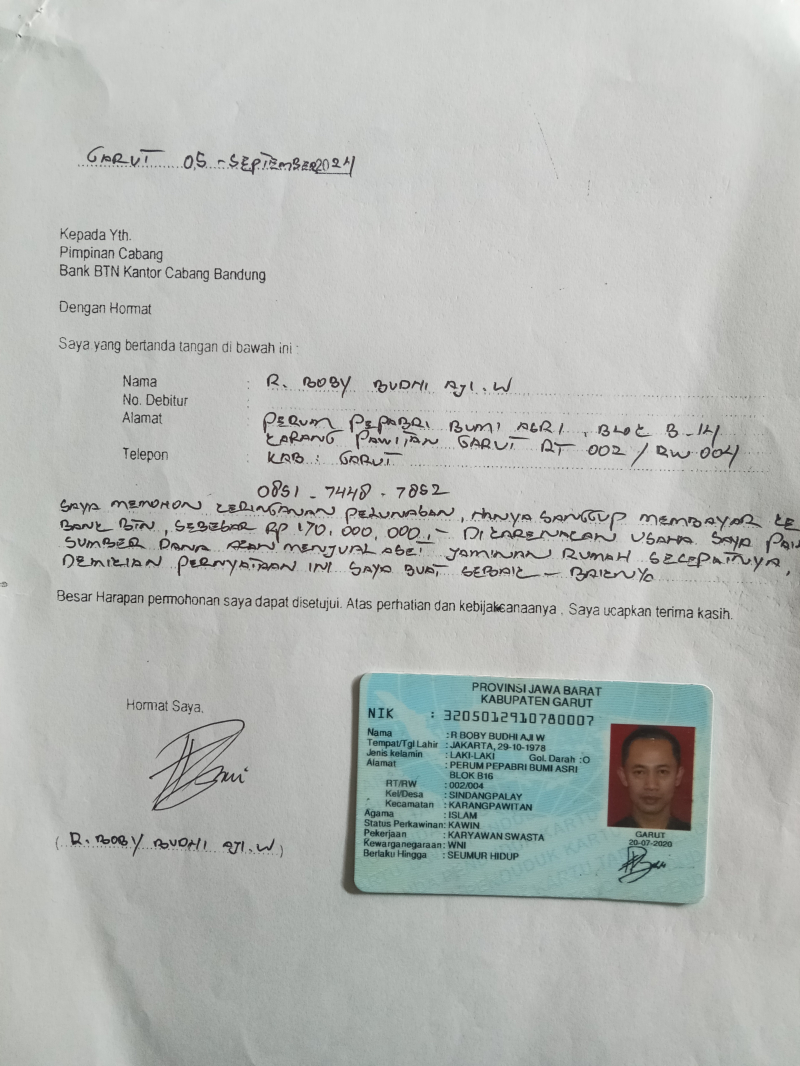 GARUT 05 - SEPTEMBER 2024
Kepada Yth.
Pimpinan Cabang
Bank BTN Kantor Cabang Bandung
Dengan Hormat
Saya yang bertanda tangan di bawah ini :
Nama : R. BOBY BUDHI AJI.W
No. Debitur :
Alamat : PERUM PEPABRI BUMI ASRI, BLOK B-14
KARANG PAWITAN GARUT RT 002 / RW 004
Telepon : KAB : GARUT
0851 - 7448 - 7852
SAYA MEMOHON KERINGANAN PELUNASAN, HANYA SANGGUP MEMBAYAR KE
BANK BTN, SEBESAR RP 170.000.000,- DIKARENAKAN USAHA SAYA
SUMBER DANA AKAN MENJUAL JAMINAN RUMAH SECEPATNYA,
DEMIKIAN PERNYATAAN INI SAYA BUAT SEBAIK - BAIKNYA
Besar Harapan permohonan saya dapat disetujui. Atas perhatian dan kebijakcanaanya . Saya ucapkan terima kasih.
Hormat Saya,
( R. BOBY BUDHI AJI.W )
PROVINSI JAWA BARAT
KABUPATEN GARUT
NIK : 3205012910780007
Nama : R BOBY BUDHI AJI W
Tempat/Tgl Lahir : JAKARTA, 29-10-1978
Jenis kelamin : LAKI-LAKI Gol. Darah :O
Alamat : PERUM PEPABRI BUMI ASRI
BLOK B16
RT/RW : 002/004
Kel/Desa : SINDANGPALAY
Kecamatan : KARANGPAWITAN
Agama : ISLAM
Status Perkawinan: KAWIN
Pekerjaan : KARYAWAN SWASTA
Kewarganegaraan: WNI
Berlaku Hingga : SEUMUR HIDUP
GARUT
20-07-2020